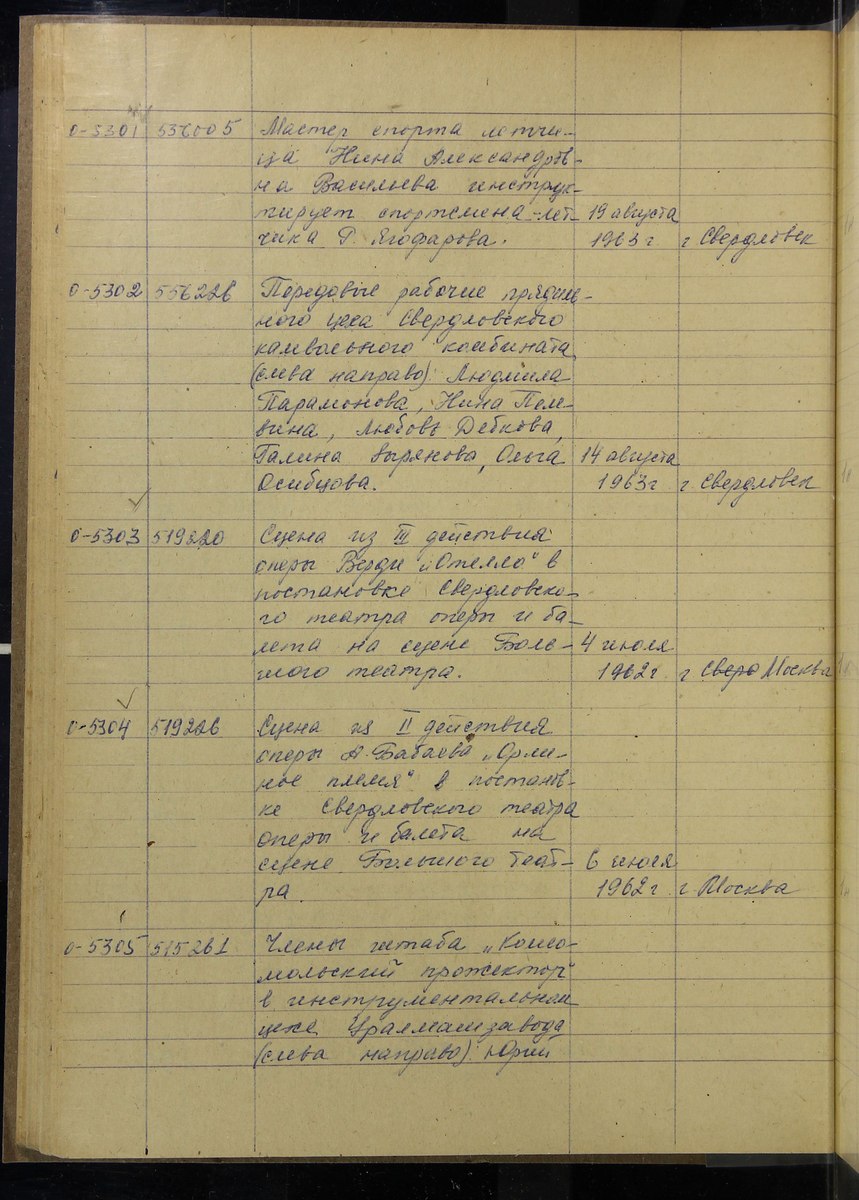 0-5301 536005 Мастер спорта летчи-
ца Нина Александров-
на Васильева инструк-
тирует спортсмена-лет- 19 августа
чика Г. Ягофарова. 1963 г. г Свердловск
0-5302 556226 Передовые рабочие прядиль-
ного цеха Свердловского
камвольного комбината
(слева направо): Людмила
Парамонова, Нина Пеле-
вина, Любовь Дебкова,
Галина Зырянова, Ольга 14 августа
Осибцова. 1963 г г. Свердловск
0-5303 519220 Сцена из III действия
оперы Верди „Отелло" в
постановке Свердловско-
го театра оперы и ба-
лета на сцене Боль- 4 июля
шого театра. 1962 г. г Сверд Москва
0-5304 519226 Сцена из II действия
оперы А. Бабаева „Орли-
ное племя" в постанов-
ке Свердловского театра
оперы и балета на
сцене Большого теат- 6 июля
ра. 1962 г г. Москва
0-5305 515261 Члены штаба „Комсо-
мольский прожектор"
в инструментальном
цехе Уралмашзавода
(слева направо): Юрий